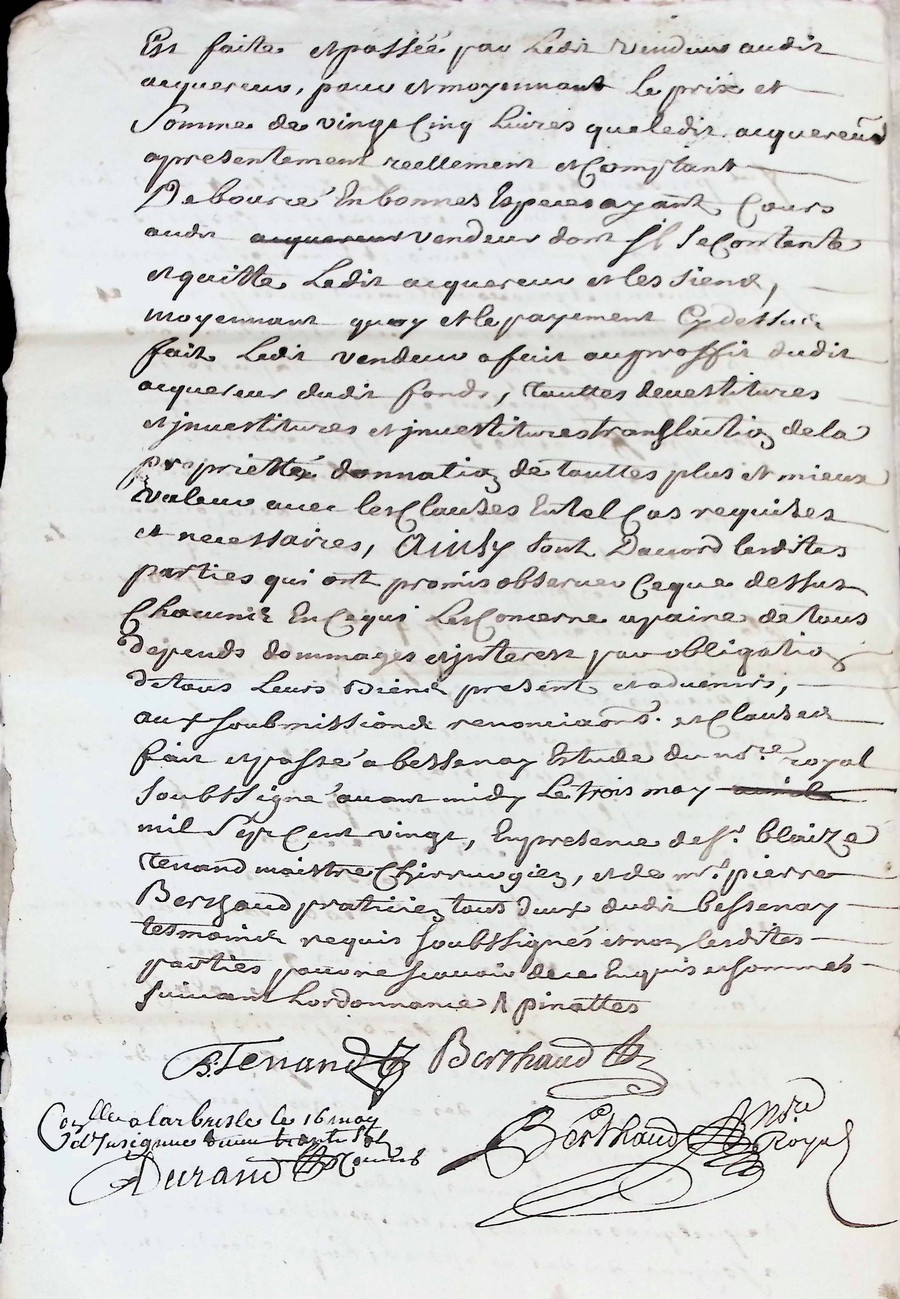 Est faitte et passée par Ledit vendeur audit
acquereur, pour et moyennant Le prix et
Somme de vingt Cinq Livres que ledit acquereur
a presentement reellement et Comptant
Debourcé En bonnes Especes ayant Cours
audit acquereur vendeur dont Il Se Contente
et quitte Ledit acquereur et les Siens,
moyennant quoy et le payement Cy dessus
fait Ledit vendeur a fait au proffit dudit
acquereur dudit fonds, touttes devestitures
et jnvestitures et jnvestitures translaction de la
proprietté donnation de touttes plus et mieux
valeur avec les Clauses En tel Cas requises
et necessaires, Ainsy Sont Daccord lesdites
parties qui ont promis observer Ceque dessus
Chacune En Cequi Les Concerne a paine de tous
depends dommages et jnterest par obligation
de tous Leurs Biens present et advenirs,
aux Soubmissions renonciaons. et Clauses
fait et passé a bessenay Estude du nore. royal
Soubssigné avant midy Le trois may avril
mil Sept Cent vingt, En presence de Sr. blaize
tenand maistre Chirrurgien, et de mr. pierre
Berthaud praticien tous deux dudit bessenay
tesmoins requis Soubssignés et non lesdites
parties pour ne scavoir de ce Enquis et sommés
suivant Lordonnance / pinattes
B. Tenand Berthaud
Conllé a larbresle le 16 may
Durand Commis
Berthaud Nore
Royal